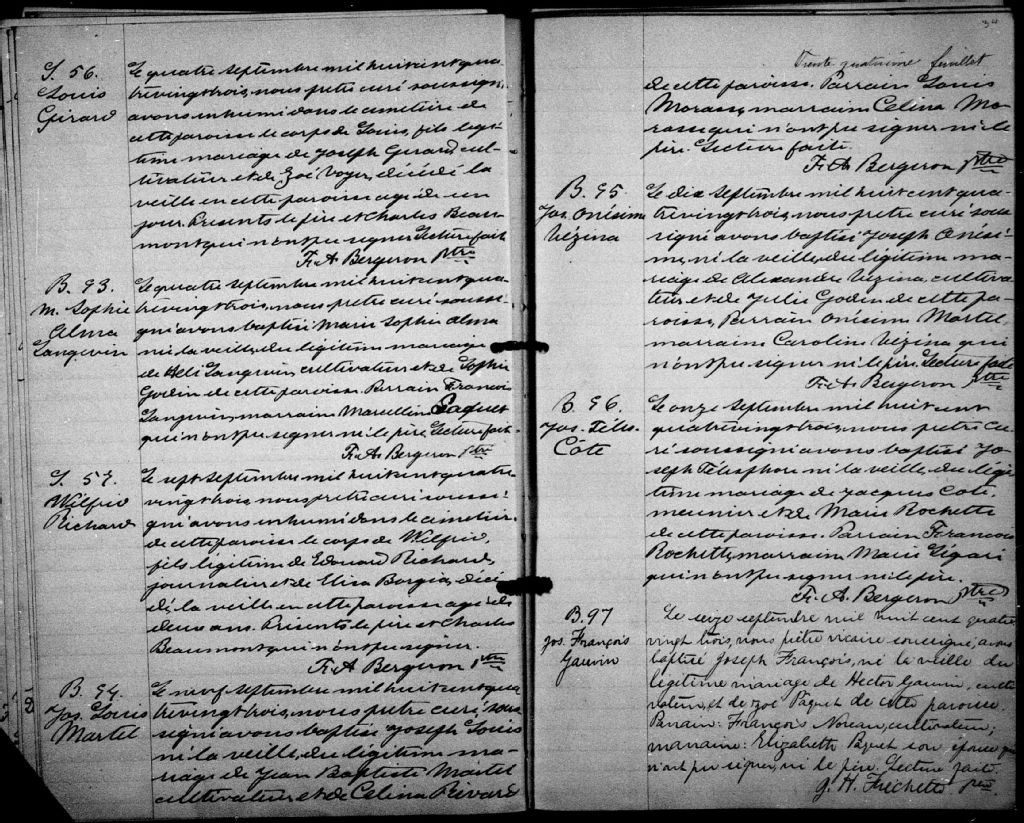 S. 56.
Louis
Gérard
Le quatre septembre mil huit cent qua-
trevingt trois, nous prêtre curé soussigné
avons inhumé dans le cimetière de
cette paroisse le corps de Louis, fils légi-
time mariage de Joseph Gerard, cul-
tivateur et de Zoé Voyer, décédé la
veille en cette paroisse agé de un
jour. Présents le père et Charles Beau-
mont qui n'ont pu signer. Lecture faite
F. A. Bergeron ptre
B. 93.
M. Sophie
Alma
Langevin
Le quatre septembre mil huit cent qua-
trevingt trois, nous prêtre curé soussi-
gné avons baptisé Marie Sophie Alma
née la veille, du légitime mariage
de Langevin, cultivateur et de Sophie
Godin de cette paroisse. Parrain Francois
Langevin, marraine Marcelline Paquet
qui n'ont pu signer ni le père. Lecture faite.
F. A. Bergeron ptre
S. 57.
Wilfrid
Richard
Le sept septembre mil huit cent quatre
vingt trois, nous prêtre curé soussi-
gné avons inhumé dans le cimetière
de cette paroisse le corps de Wilfrid,
fils légitime de Edouard Richard,
journalier et de Elisa Borgia, décé-
dé, la veille en cette paroisse agé de
deux ans. Présents le père et Charles
Beaumont qui n'ont pu signer.
F. A. Bergeron ptre
B. 94.
Jos. Louis
Martel
Le neuf septembre mil huit cent qua
trevingt trois, nous prêtre curé sous
signé avons baptisé Joseph Louis
né la veille, du légitime ma-
riage de Jean Baptiste Martel
cultivateur et de Celina Rivard
Trente quatrième feuillet
de cette paroisse. Parrain Louis
Morasse, marraine Celina Mo-
rasse qui n'ont pu signer ni le
père. Lecture faite.
F. A. Bergeron ptre
B. 95.
Jos. Onésime
Vézina
Le dix septembre mil huit cent qua-
trevingt trois, nous prêtre curé sous
signé avons baptisé Joseph Onési-
me, né la veille, du légitime ma-
riage de Alexandre Vézina, cultiva-
teur et de Julie Godin de cette pa-
roisse, Parrain Onésime Martel,
marraine Caroline Vézina qui
n'ont pu signer ni le père. Lecture faite
F. A. Bergeron ptre
B. 96.
Jos. Téles.
Côte
Le onze septembre mil huit cent
quatrevingt trois, nous prêtre cu-
ré soussigné avons baptisé Jo-
seph Télesphore né la veille du légi-
time mariage de Jacques Coté,
meunier et de Marie Rochette
de cette paroisse. Parrain Francois
Rochette, marraine Marie Légaré
qui n'ont pu signer ni le père.
F. A. Bergeron ptre
B. 97
Jos. François
Gauvin
Le seize septembre mil huit cent quatre
vingt trois, nous prêtre vicaire soussigné, avons
baptisé Joseph François, né la veille du
légitime mariage de Hector Gauvin, culti-
vateur, et de Zoé Paquet de cette paroisse.
Parrain: François Noreau, cultivateur,
marraine: Elizabeth Paquet son épouse qui
n'ont pu signer, ni le père. Lecture faite.
G. H. Fréchette ptre